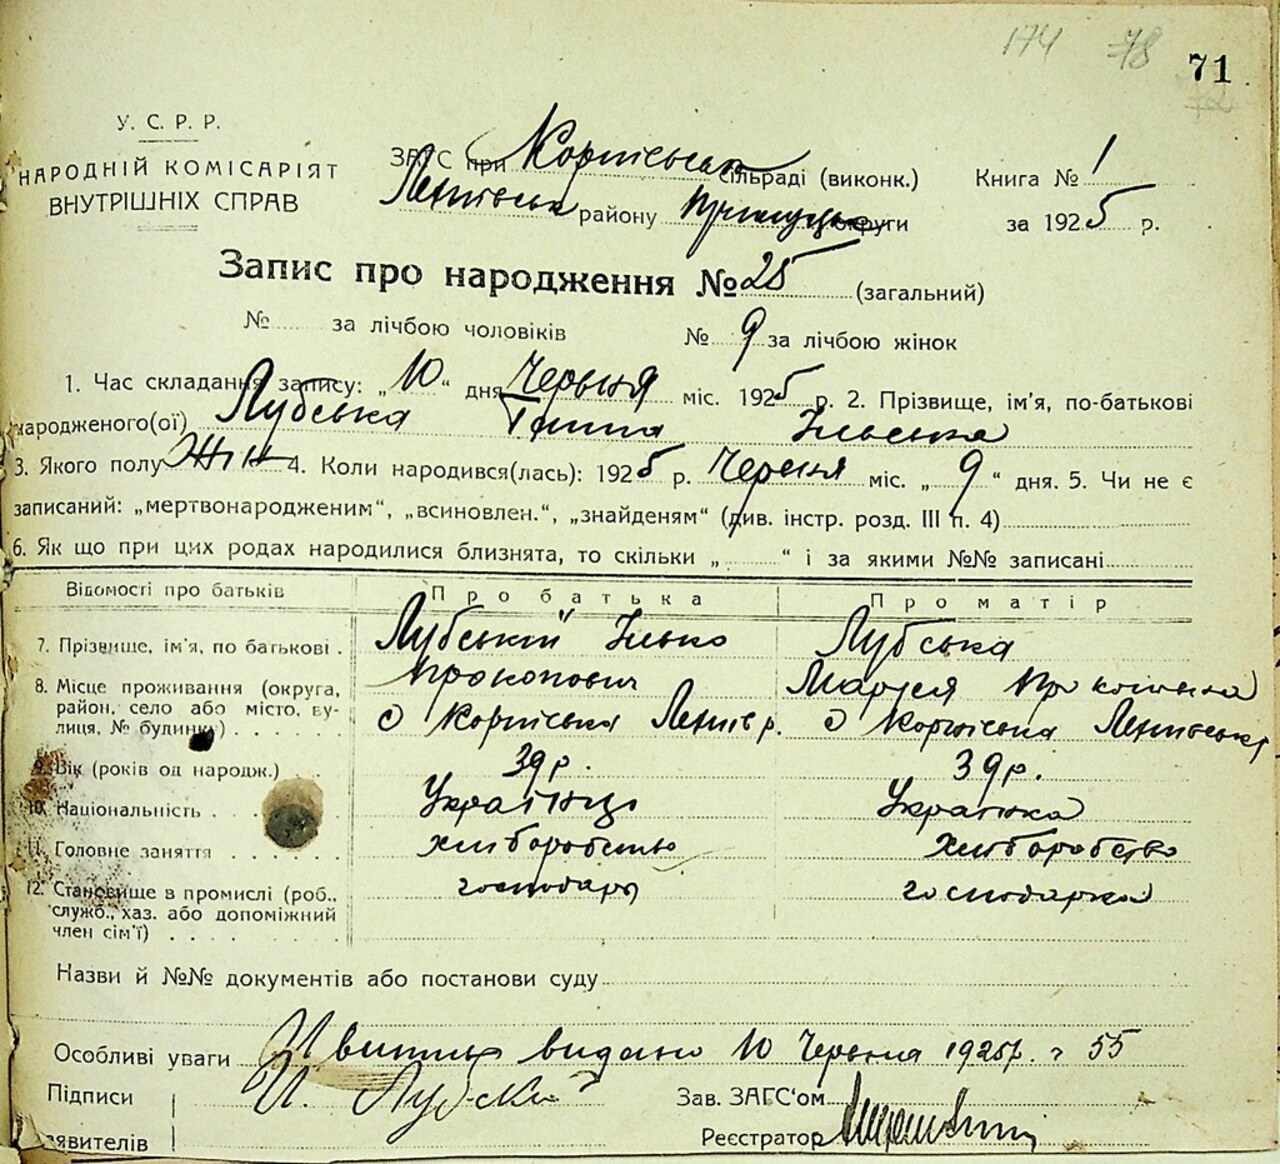 174 78 71
У. С. Р. Р.
НАРОДНІЙ КОМІСАРІЯТ
ВНУТРІШНІХ СПРАВ
ЗАГС при сільраді (виконк.) Книга № 1
району округи за 1925 р.
Запис про народження № 25 (загальний)
№ за лічбою чоловіків № 9 за лічбою жінок
1. Час складання запису: „10“ дня Червня міс. 1925 р. 2. Прізвище, ім'я, по-батькові
народженого(ої) Лубська Ганна Ільська
3. Якого полу Жін 4. Коли народився(лась): 1925 р. Червня міс. „9“ дня. 5. Чи не є
записаний: „мертвонародженим“, „всиновлен.“, „знайденям“ (див. інстр. розд. III п. 4)
6. Як що при цих родах народилися близнята, то скільки „ “ і за якими №№ записані
Відомості про батьків Про батька Про матір
7. Прізвище, ім'я, по батькові . Лубський Ілько Прокопович Лубська
8. Місце проживання (округа,
район, село або місто, ву-
лиця, № будинку) с с
9. Вік (років од народж.) 39 р. 39 р.
10. Національність Українці Українка
11. Головне заняття хліборобство
12. Становище в промислі (роб.,
служб., хаз. або допоміжний
член сім'ї) господарь господарка
Назви й №№ документів або постанови суду
Особливі уваги видано 10 Червня 1925 р. 55
Підписи И. Лубский Зав. ЗАГС'ом
явителів Реєстратор